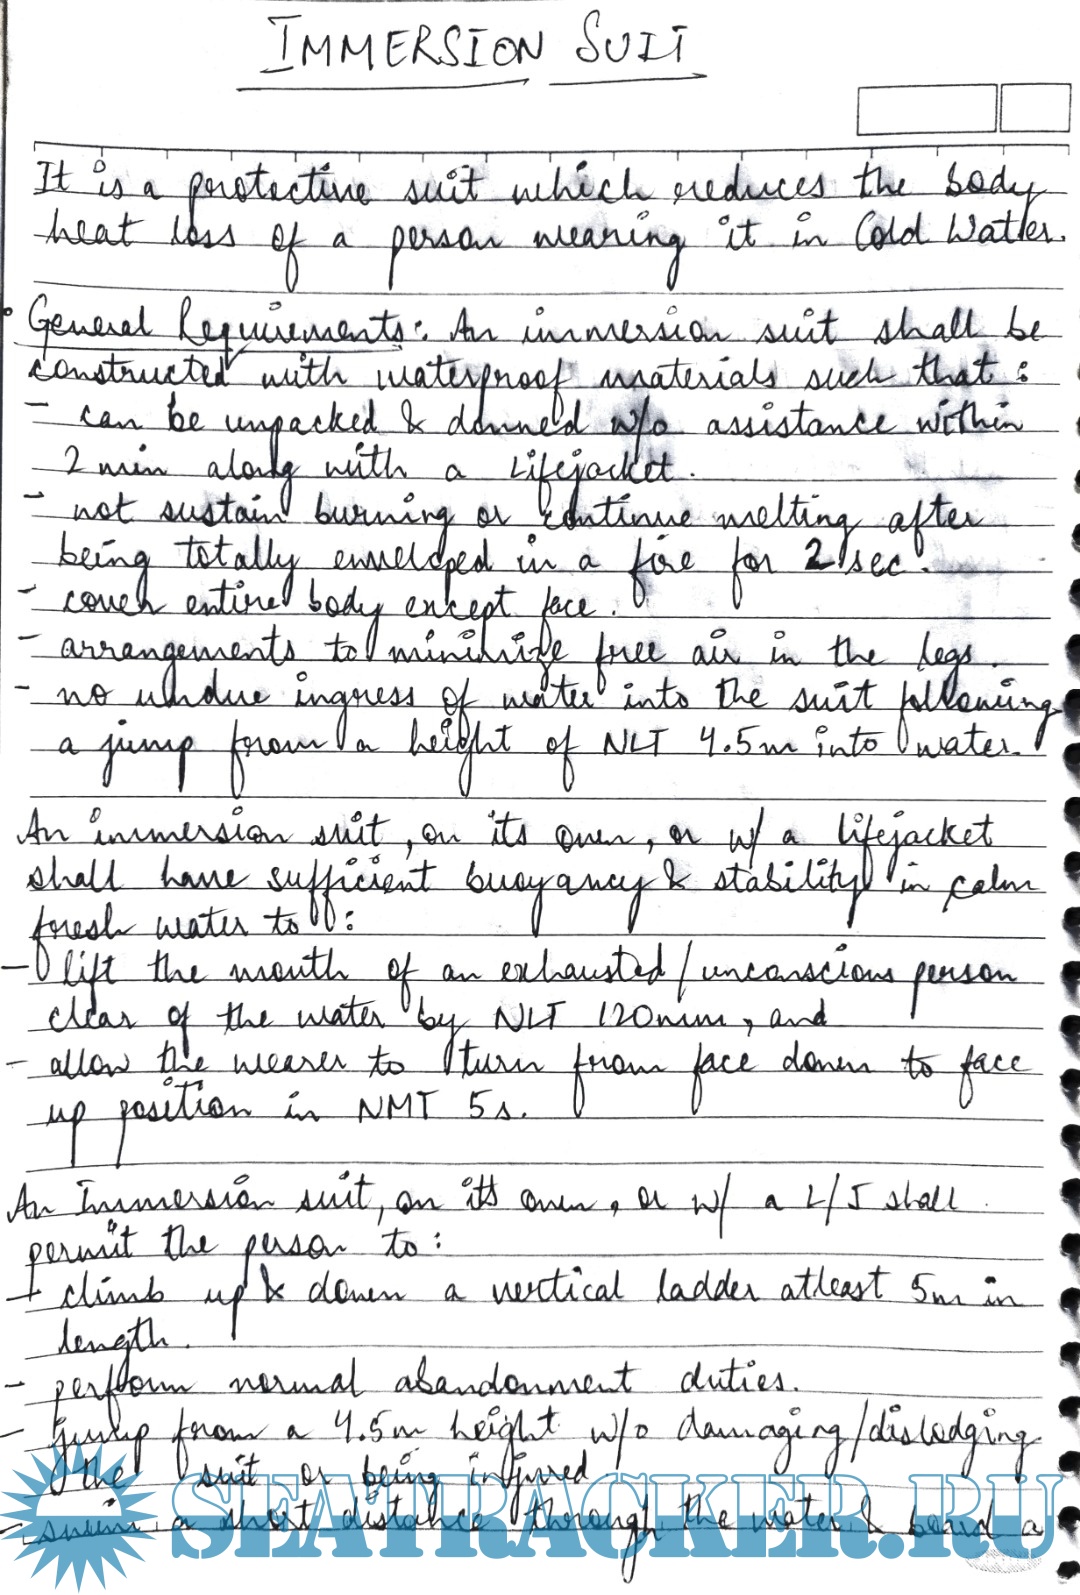 IMMERSION SUIT
It is a protective suit which reduces the body
heat loss of a person wearing it in Cold Water.
• General Requirements: An immersion suit shall be
constructed with waterproof materials such that:
- can be unpacked & donned w/o assistance within
2 min along with a lifejacket.
- not sustain burning or continue melting after
being totally enveloped in a fire for 2 sec.
- cover entire body except face.
- arrangements to minimize free air in the legs.
- no undue ingress of water into the suit following
a jump from a height of NLT 4.5m into water.
An immersion suit, on its own, or w/ a lifejacket
shall have sufficient buoyancy & stability in calm
fresh water to:
- lift the mouth of an exhausted/unconscious person
clear of the water by NLT 120mm, and
- allow the wearer to turn from face down to face
up position in NMT 5s.
An Immersion suit, on its own, or w/ a L/J shall
permit the person to:
- climb up & down a vertical ladder atleast 5m in
length.
- perform normal abandonment duties.
- jump from a 4.5m height w/o damaging/dislodging
the suit or being injured
- swim a short distance through the water & board a
SEATRACKER.RU